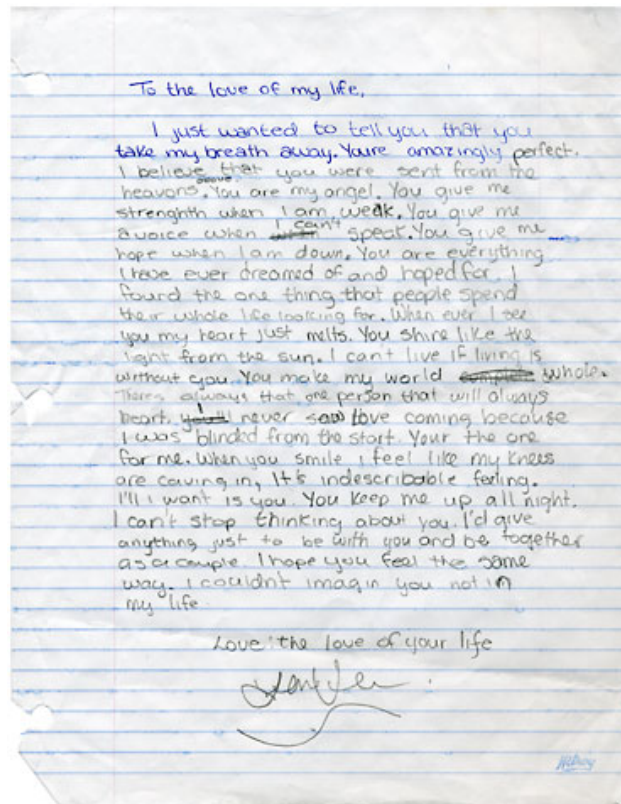 To the love of my life,
I just wanted to tell you that you
take my breath away. Youre amazingly perfect.
I believe that you were sent from the
heavons above. You are my angel. You give me
strenghth when I am weak. You give me
a voice when I can't speak. You give me
hope when I am down. You are everything
I have ever dreamed of and hoped for. I
found the one thing that people spend
their whole life looking for. When ever I see
you my heart just melts. You shine like the
light from the sun. I can't live if living is
without you. You make my world whole.
Theres always that one person that will always
heart. I never saw love coming because
I was blinded from the start. Your the one
for me. When you smile I feel like my knees
are caving in, It's indescribable feeling.
I'll I want is you. You keep me up all night.
I can't stop thinking about you. I'd give
anything just to be with you and be together
as a couple. I hope you feel the same
way. I couldn't imagin you not in
my life
Love: the love of your life